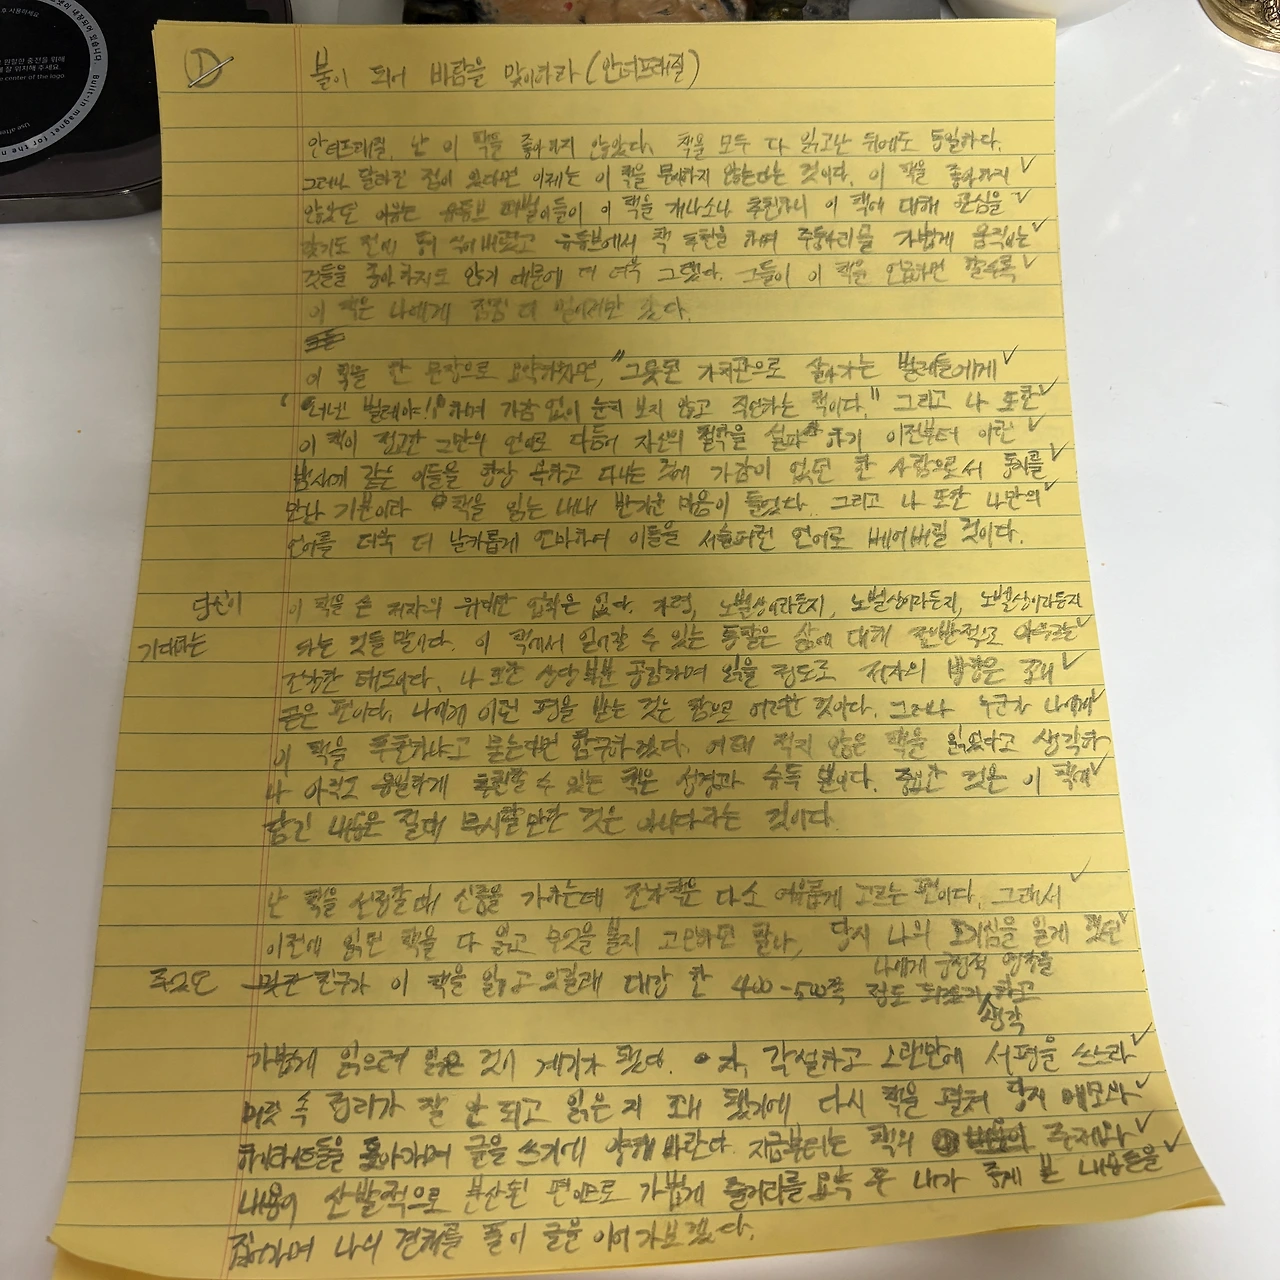 ①
불이 되어 바람을 맞이하라 (안티프래질)
안티프래질. 난 이 책을 좋아하지 않았다. 책을 모두 다 읽고난 뒤에도 동일하다.
그러나 달라진 점이 있다면 이제는 이 책을 무시하지 않는다는 것이다. 이 책을 좋아하지
않았던 이유는 유튜브 떠벌이들이 이 책을 개나소나 추천하니 이 책에 대해 관심을
갖기도 전에 식어버렸고 유튜브에서 책 추천을 하며 주둥아리를 가볍게 움직이는
것들을 좋아하지도 않기 때문에 더 더욱 그랬다. 그들이 이 책을 언급하면 할수록
이 책은 나에게 점점 더 멀어져만 갔다.
이 책을 한 문장으로 요약하자면, "그릇된 가치관으로 살아가는 벌레들에게
'너넨 벌레야!' 하며 가감 없이 눈치 보지 않고 직언하는 책이다." 그리고 나 또한
이 책이 정교한 그만의 언어로 다듬어 자신의 철학을 설파 하기 이전부터 이런
밥새끼 같은 이들을 항상 욕하고 다니는 것에 가감이 없던 한 사람으로서 동지를
만난 기분이라 책을 읽는 내내 반가운 마음이 들었다. 그리고 나 또한 나만의
언어를 더욱 더 날카롭게 연마하여 이들을 서슬퍼런 언어로 베어버릴 것이다.
당신이 이 책을 쓴 저자의 위대한 업적은 없다. 가령, 노벨상이라든지, 노벨상이라든지, 노벨상이라든지
기대하는 하는 것들 말이다. 이 책에서 얻어갈 수 있는 통찰은 삶에 대해 전반적으로 아우르는
진솔한 태도이다. 나 또한 상당 부분 공감하며 읽을 정도로 저자의 방향은 꽤
곧은 편이다. 나에게 이런 평을 받는 것은 참으로 어려운 것이다. 그러나 누군가 나에게
이 책을 추천하냐고 묻는다면 함구하겠다. 여태 적지 않은 책을 읽었다고 생각하
나 아직도 유일하게 추천할 수 있는 책은 성경과 숫독 뿐이다. 중요한 것은 이 책에
담긴 내용은 절대 무시할만한 것은 아니다라는 것이다.
난 책을 선정할때 신중을 가하는데 전자책은 다소 여유롭게 고르는 편이다. 그래서
이전에 읽던 책을 다 읽고 무엇을 볼지 고민하던 찰나, 당시 나의 호기심을 일게 했던
친구가 이 책을 읽고 있길래 대강 한 400-500쪽 정도 되는
나에게 긍정적 영향을
하고
생각
가볍게 읽으려 읽은 것이 계기가 됐다. 자, 각설하고 오랜만에 서평을 쓰느라
머릿 속 정리가 잘 안 되고 읽은 지 꽤 됐기에 다시 책을 펼쳐 당시 메모와
하이라이트들을 톺아가며 글을 쓰기에 양해 바란다. 지금부터는 책의 주제와
내용이 산발적으로 분산된 편이므로 가볍게 줄거리를 요약 후 내가 좋게 본 내용들을
짚어가며 나의 견해를 풀어 글을 이어가보겠다.
Built-in magnet for the
center of the logo